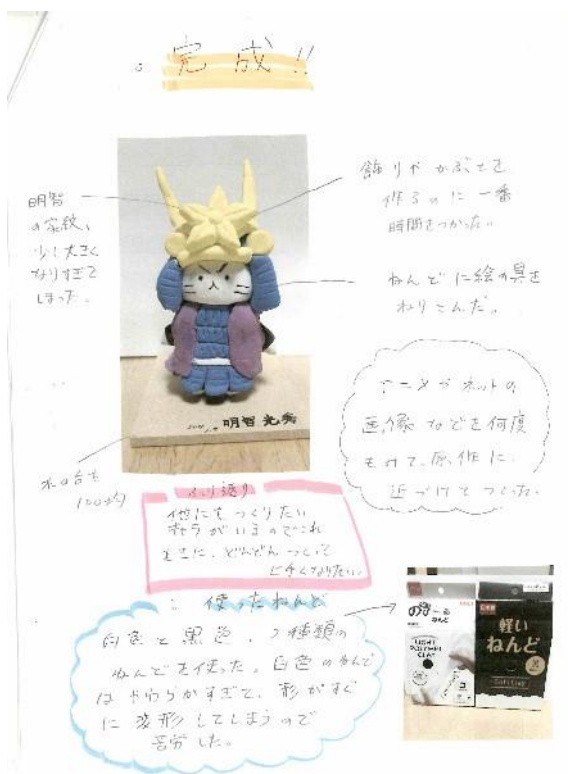 完成!!
明智
の家紋、
少し大きく
なりすぎて
しまった。
飾りやかぶとを
作るのに一番
時間をつかった。
ねんどに絵の具を
ねりこんだ。
アニメやネットの
画像などを何度
もみて、原作に
近づけてつくった。
明智 光秀
木の台も
100均
ふり返り
他にもつくりたい
キャラがいるのでこれ
をきに、どんどんつくって
上手くなりたい。
使ったねんど
白色と黒色、2種類の
ねんどを使った。白色のねんど
はやわらかすぎて、形がすぐ
に変形してしまうので
苦労した。
のび〜る
ねんど
LIGHT
POLYMER
CLAY
軽い
ねんど
Soft Clay